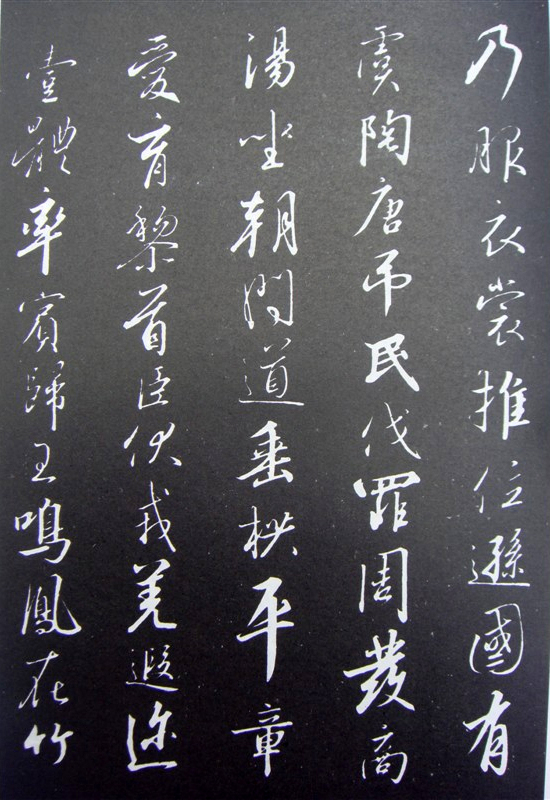 乃服衣裳推位遜國有
虞陶唐吊民伐罪周發商
湯坐朝問道垂拱平章
愛育黎首臣伏戎羌遐迩
壹體率賓歸王鳴鳳在竹